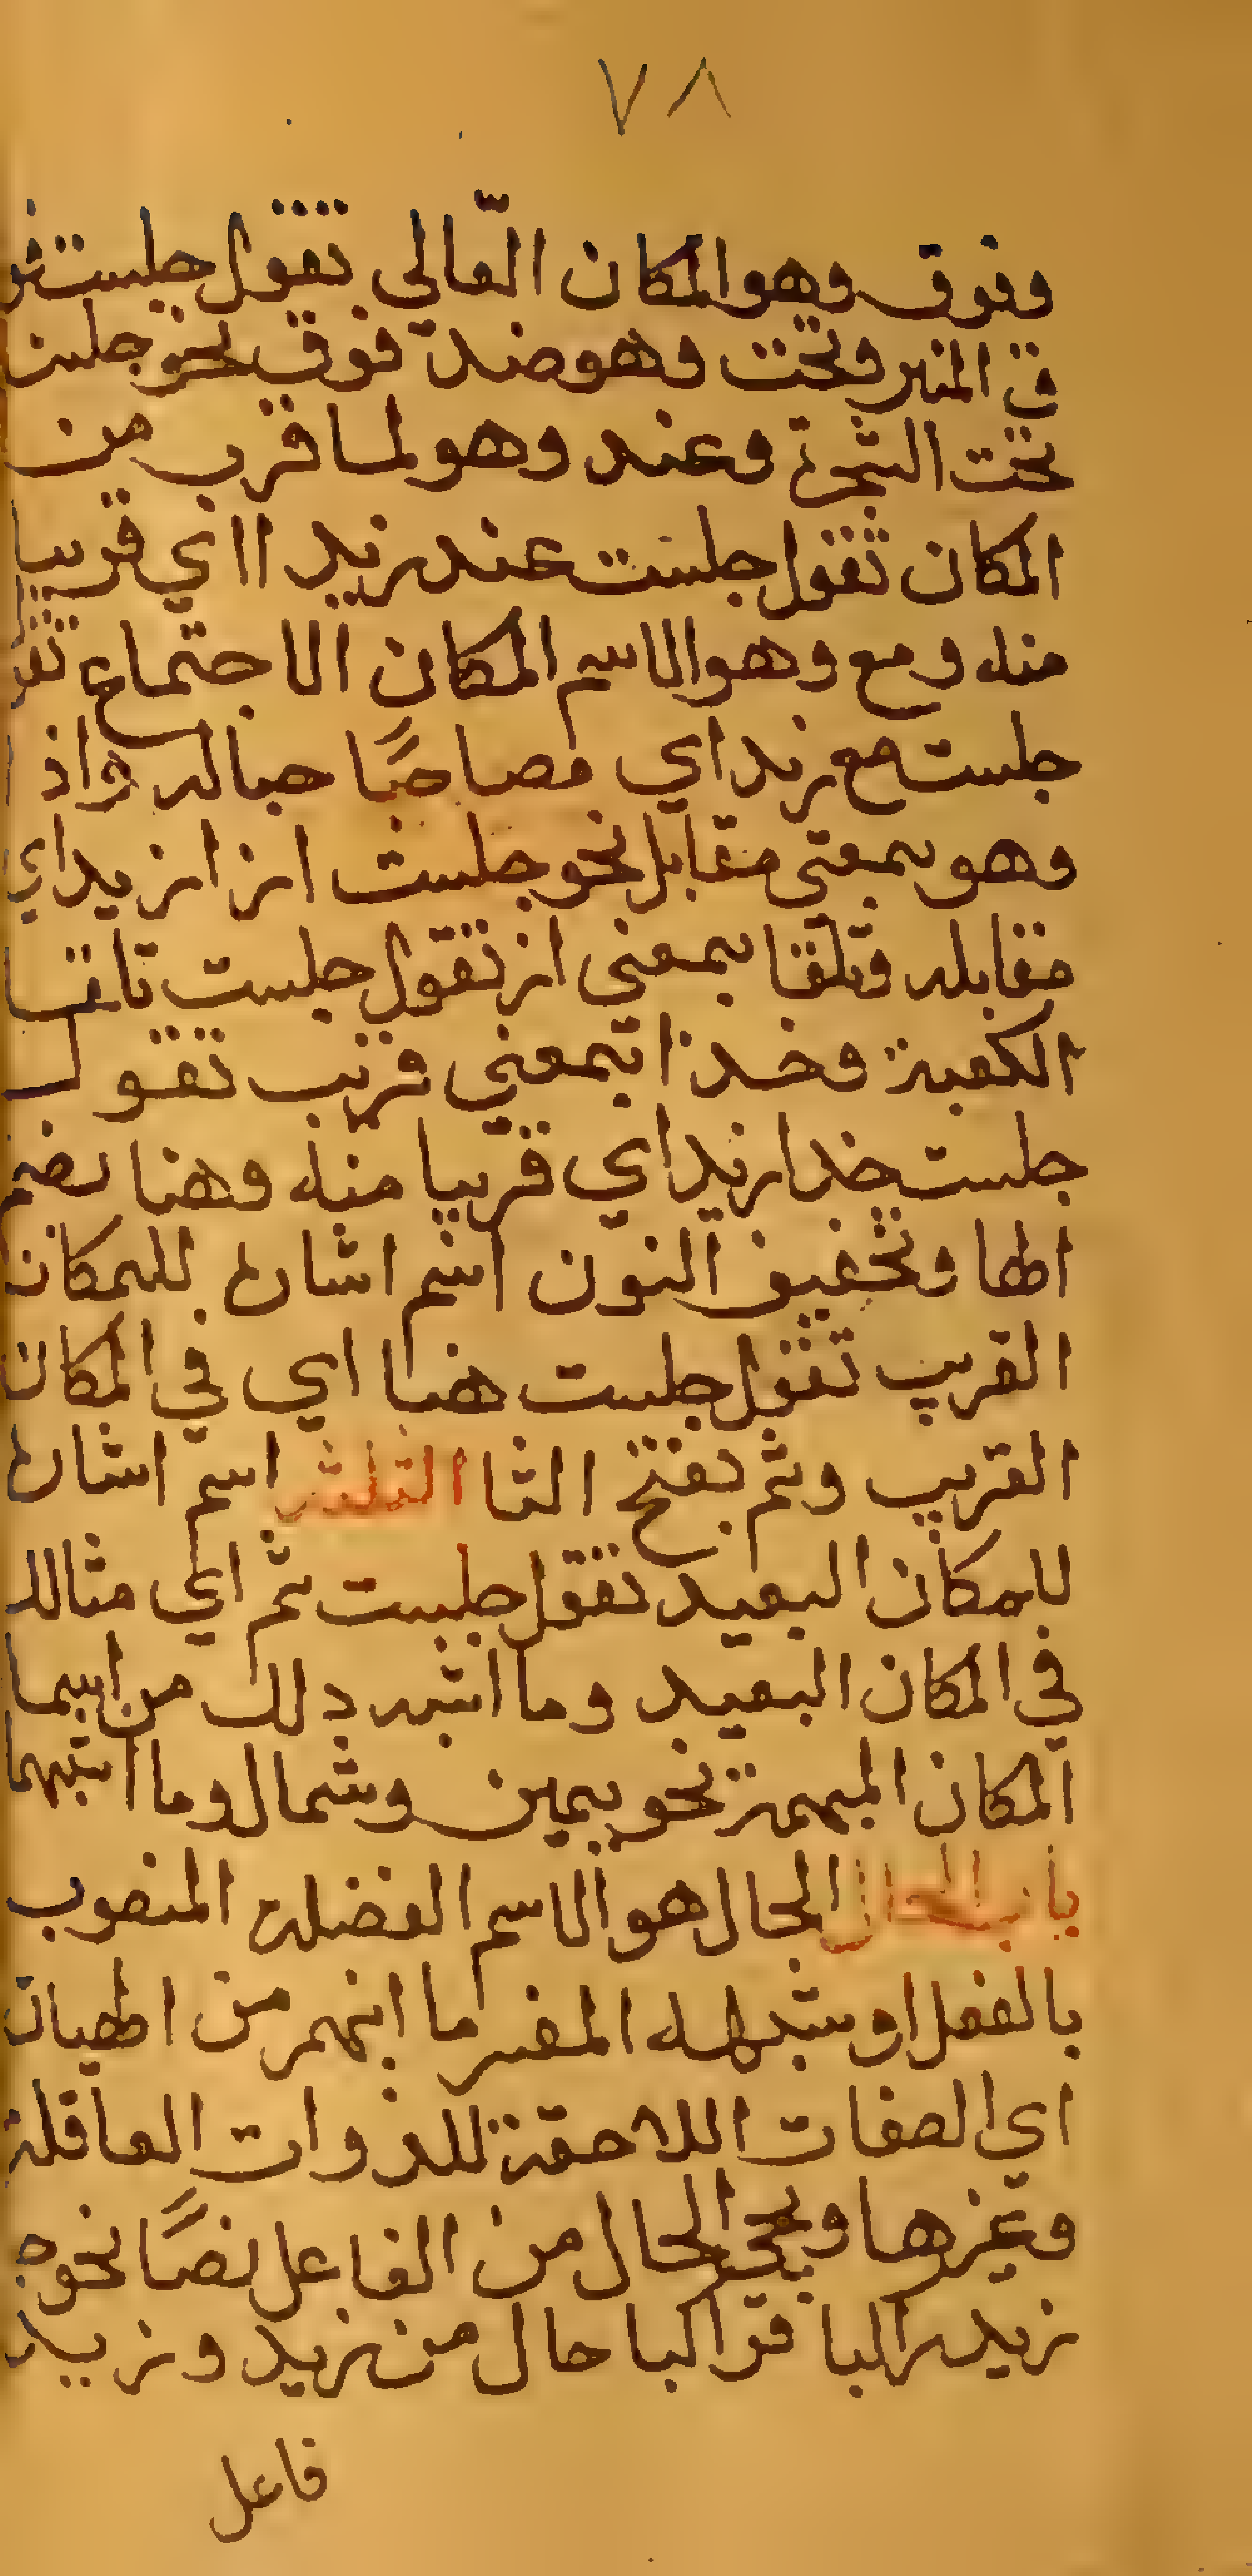 ٧٨
وفوق وهو المكان العالي تقول جلست فو
ق المنبر وتحت وهو ضد فوق نحو جلست
تحت الشجرة وعند وهو لما قرب من
المكان تقول جلست عند زيد ااي قريبا
منه ومع وهو الاسم المكان الاجتماع تقو
جلست مع زيد اي مصاحبًا حباله واذ
وهو بمعنى مقابل نحو جلست ازا زيد اي
مقابله وتلقا بمعنى از تقول جلست تلقا
الكعبة وحذا بمعني قريب تقول
جلست حذا زيد اي قريبا منه وهنا بضم
الها وتخفيف النون اسم اشاره للمكان
القريب تقول جلست هنا اي في المكان
القريب وثم بفتح الثا المثلثه اسم اشاره
للمكان البعيد تقول جلست ثم اي مثاله
في المكان البعيد وما اشبه دلك من اسما
المكان المبهمة نحو يمين وشمال وما اشبهما
باب الحال الحال هو الاسم الفضلة المنصوب
بالفعل او شبهه المفسر ما انبهم من الهيات
اي الصفات اللاحقة للذوات العاقلة
وغيرها ويجي الحال من الفاعل نصًا نحو ج
زيد راكبا فراكبا حال من زيد وزيد
فاعل